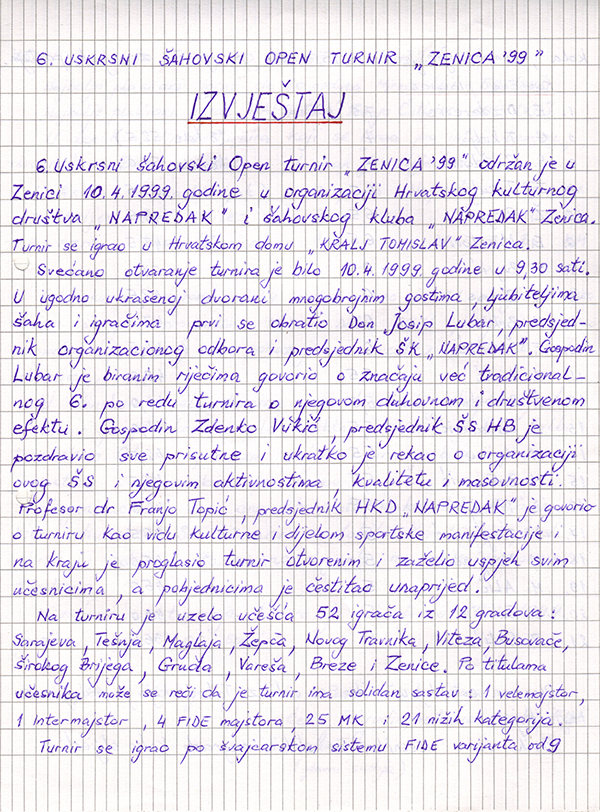 6. USKRSNI ŠAHOVSKI OPEN TURNIR „ZENICA '99"
IZVJEŠTAJ
6. Uskrsni šahovski Open turnir „ZENICA '99" održan je u
Zenici 10.4.1999. godine u organizaciji Hrvatskog kulturnog
društva „NAPREDAK" i šahovskog kluba „NAPREDAK" Zenica.
Turnir se igrao u Hrvatskom domu „KRALJ TOMISLAV" Zenica.
Svečano otvaranje turnira je bilo 10.4.1999. godine u 9,30 sati.
U ugodno ukrašenoj dvorani mnogobrojnim gostima, ljubiteljima
šaha i igračima prvi se obratio Don Josip Lubar, predsjed-
nik organizacionog odbora i predsjednik ŠK „NAPREDAK". Gospodin
Lubar je biranim riječima govorio o značaju već tradicional-
nog 6. po redu turnira o njegovom duhovnom i društvenom
efektu. Gospodin Zdenko Vukić, predsjednik ŠS HB je
pozdravio sve prisutne i ukratko je rekao o organizaciji
ovog ŠS i njegovim aktivnostima, kvalitetu i masovnosti.
Profesor dr Franjo Topić, predsjednik HKD „NAPREDAK" je govorio
o turniru kao vidu kulturne i dijelom sportske manifestacije i
na kraju je proglasio turnir otvorenim i zaželio uspjeh svim
učesnicima, a pobjednicima je čestitao unaprijed.
Na turniru je uzelo učešća 52 igrača iz 12 gradova:
Sarajeva, Tešnja, Maglaja, Žepča, Novog Travnika, Viteza, Busovače,
Širokog Brijega, Gruda, Vareša, Breze i Zenice. Po titulama
učesnika može se reči da je turnir ima solidan sastav: 1 velemajstor,
1 Intermajstor, 4 FIDE majstora, 25 MK i 21 nižih kategorija.
Turnir se igrao po švajcarskom sistemu FIDE varijanta od 9